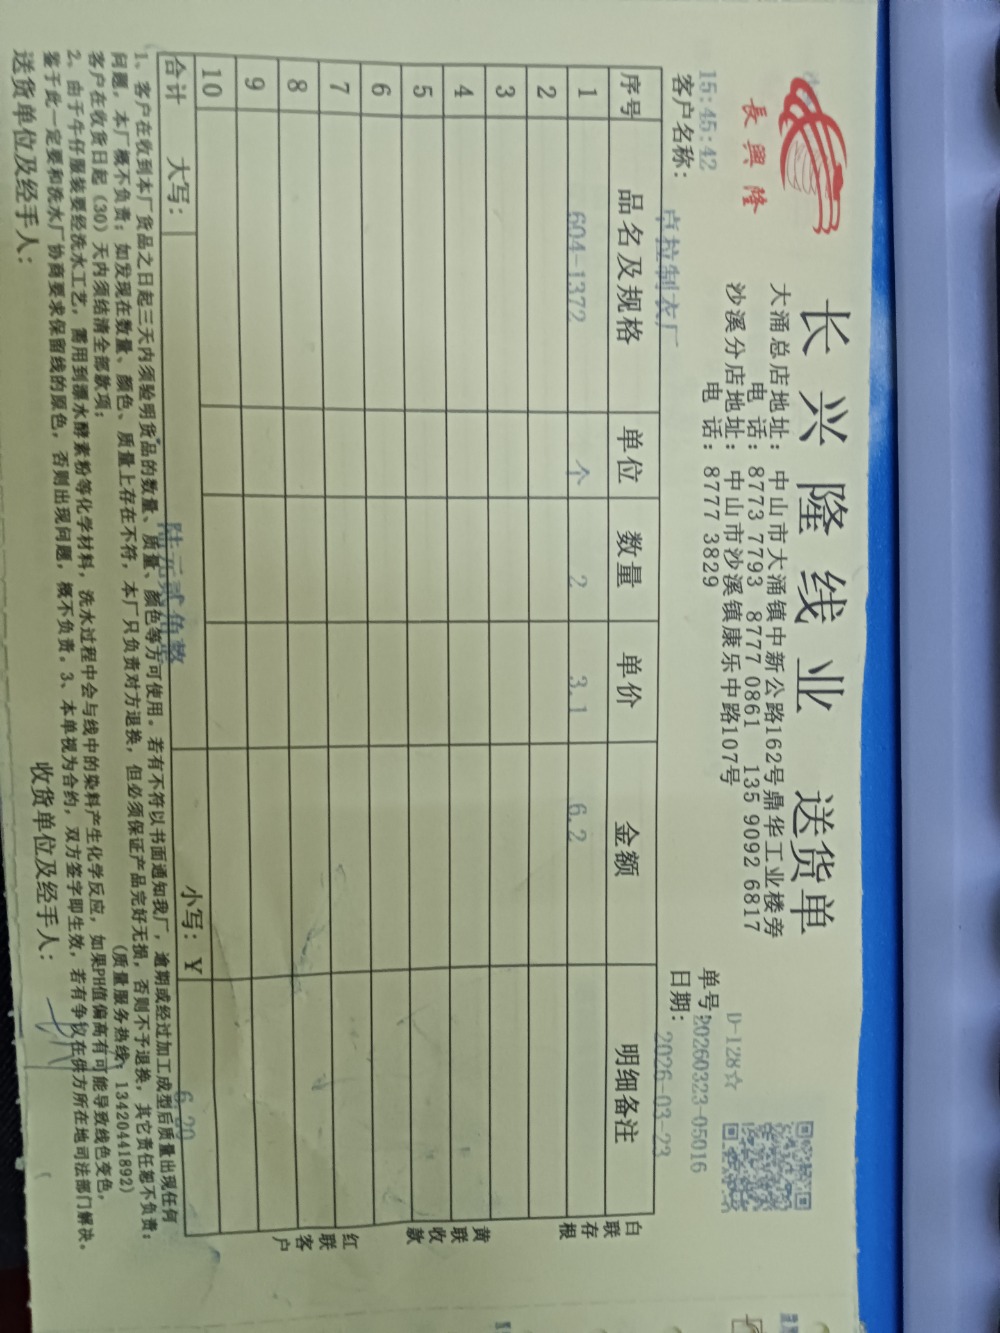 長興隆
长兴隆线业 送货单
大涌总店地址：中山市大涌镇中新公路162号鼎华工业楼旁
电 话：8773 7793 8777 0861 135 9092 6817
沙溪分店地址：中山市沙溪镇康乐中路107号
电 话：8777 3829
D-128☆
单号：20260323-05016
15:45:42
客户名称：卓拉制衣厂
日期：2026-03-23
序号 品名及规格 单位 数量 单价 金额 明细备注
1 604-1372 个 2 3.1 6.2
2
3
4
5
6
7
8
9
10
合计 大写：陆元贰角整 小写：￥ 6.20
白联存根
黄联收款
红联客户
1、客户在收到本厂货品之日起三天内须验明货品的数量、质量、颜色等方可使用。若有不符以书面通知我厂，逾期或经过加工成型后质量出现任何
问题，本厂概不负责；如发现在数量、颜色、质量上存在不符，本厂只负责对方退换，但必须保证产品完好无损，否则不予退换，其它责任恕不负责；
客户在收货日起（30）天内须结清全部款项； （质量服务热线：13420441892）
2、由于牛仔服装要经洗水工艺，需用到漂水酵素粉等化学材料，洗水过程中会与线中的染料产生化学反应，如果PH值偏高有可能导致线色变色，
鉴于此一定要和洗水厂协商要求保留线的原色，否则出现问题，概不负责。3、本单视为合约，双方签字即生效，若有争议在供方所在地司法部门解决。
送货单位及经手人： 收货单位及经手人：